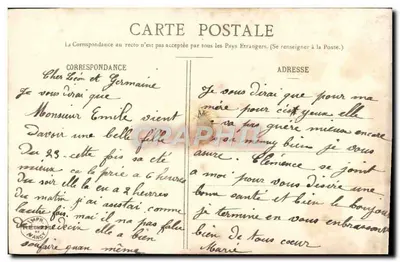 CARTE POSTALE
La Correspondance au recto n'est pas acceptée par tous les Pays Etrangers. (Se renseigner à la Poste.)
CORRESPONDANCE
Cher Léon et Germaine
Je vous dirai que
Monsieur Emile vient
davoir une belle fille
Du 23 cette fois sa été
mieux ca la prie a 6 heures
du soir elle la eu a 2 heures
du matin j'ai assistai comme
lautre fois, mai il na pas falu
De medecin elle a bien
soufaire quan même
ADRESSE
Je vous dirai que pour ma
mère pour yeux elle
va pas guère mieux encore
bien je vous
asure. Clemence se joint
a moi pour vous désire une
bone sante et bien le bonjour
Je termine en vous enbrassant
bien de tous cœur
Marie